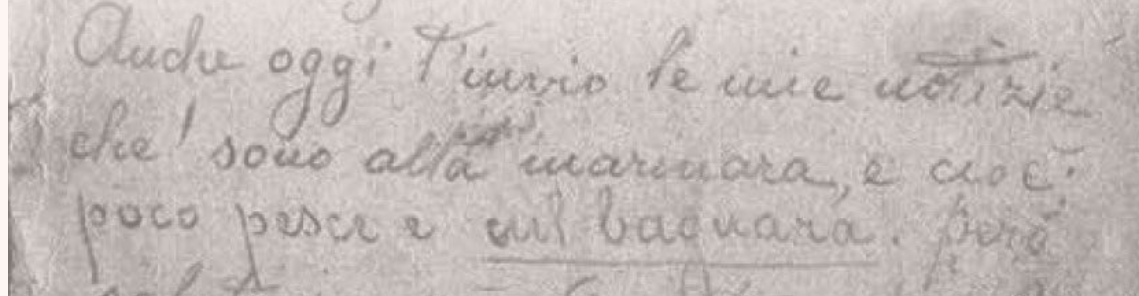 Anche oggi t'invio le mie notizie
che' sono alla marinara, e cioè
poco pesce e cul bagnara. però